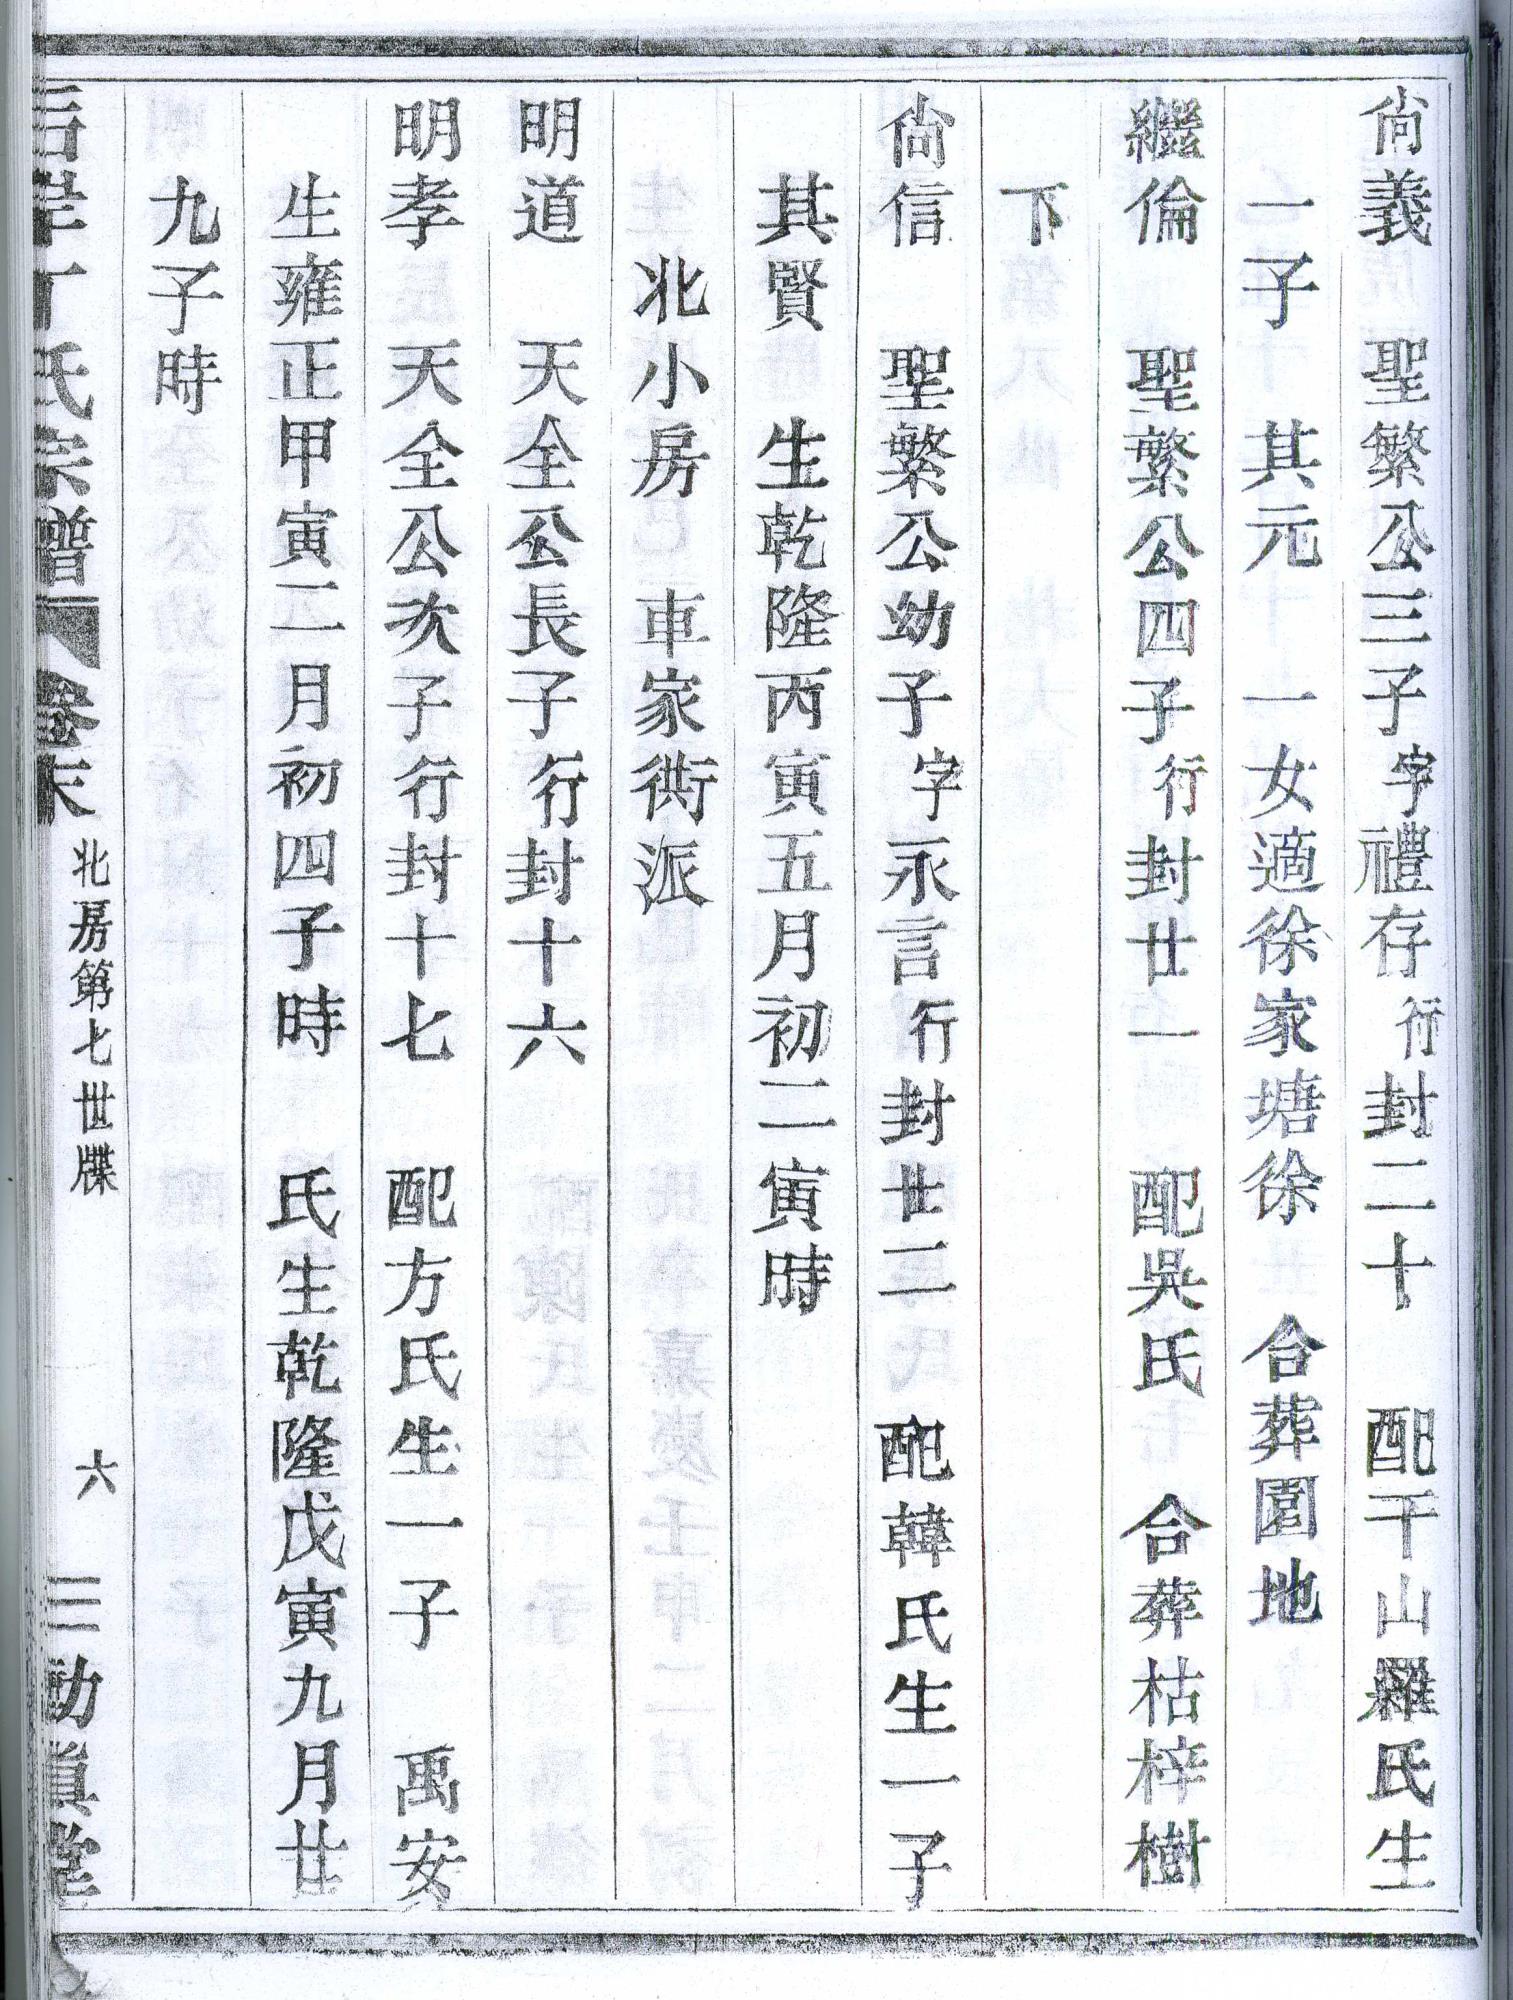 尙義　聖繁公三子字禮存行封二十　配干山羅氏生
一子　其元　一女適徐家塘徐　合葬園地
繼倫　聖繁公四子行封廿一　配吳氏　合葬枯梓樹
下
尙信　聖繁公幼子字永言行封廿二　配韓氏生一子
其賢　生乾隆丙寅五月初二寅時
北小房　車家衖派
明道　天全公長子行封十六
明孝　天全公次子行封十七　配方氏生一子　禹安
生雍正甲寅二月初四子時　氏生乾隆戊寅九月廿
九子時
丁氏宗譜　卷末　北房第七世牒　六　三勘眞堂